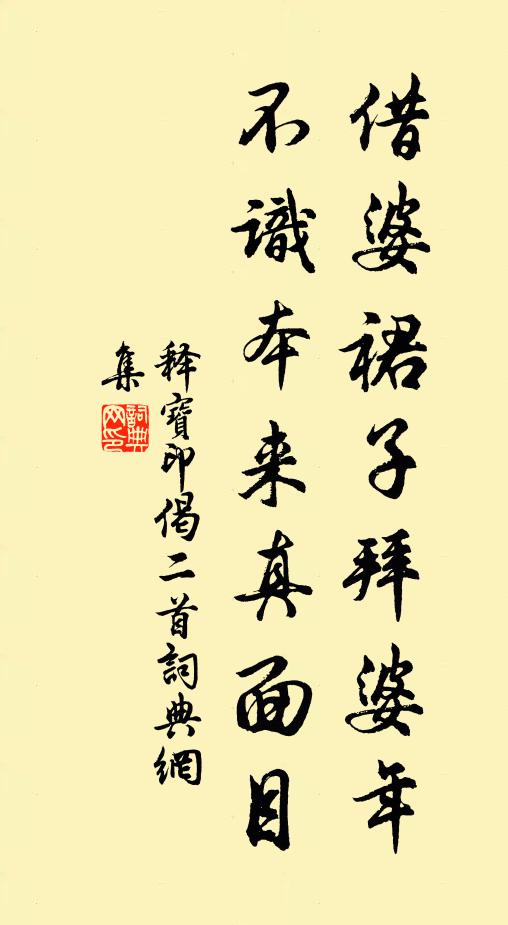 借婆裙子拜婆年
不識本来真面目
释寶印偈二首詞典網
集
詞典
网印